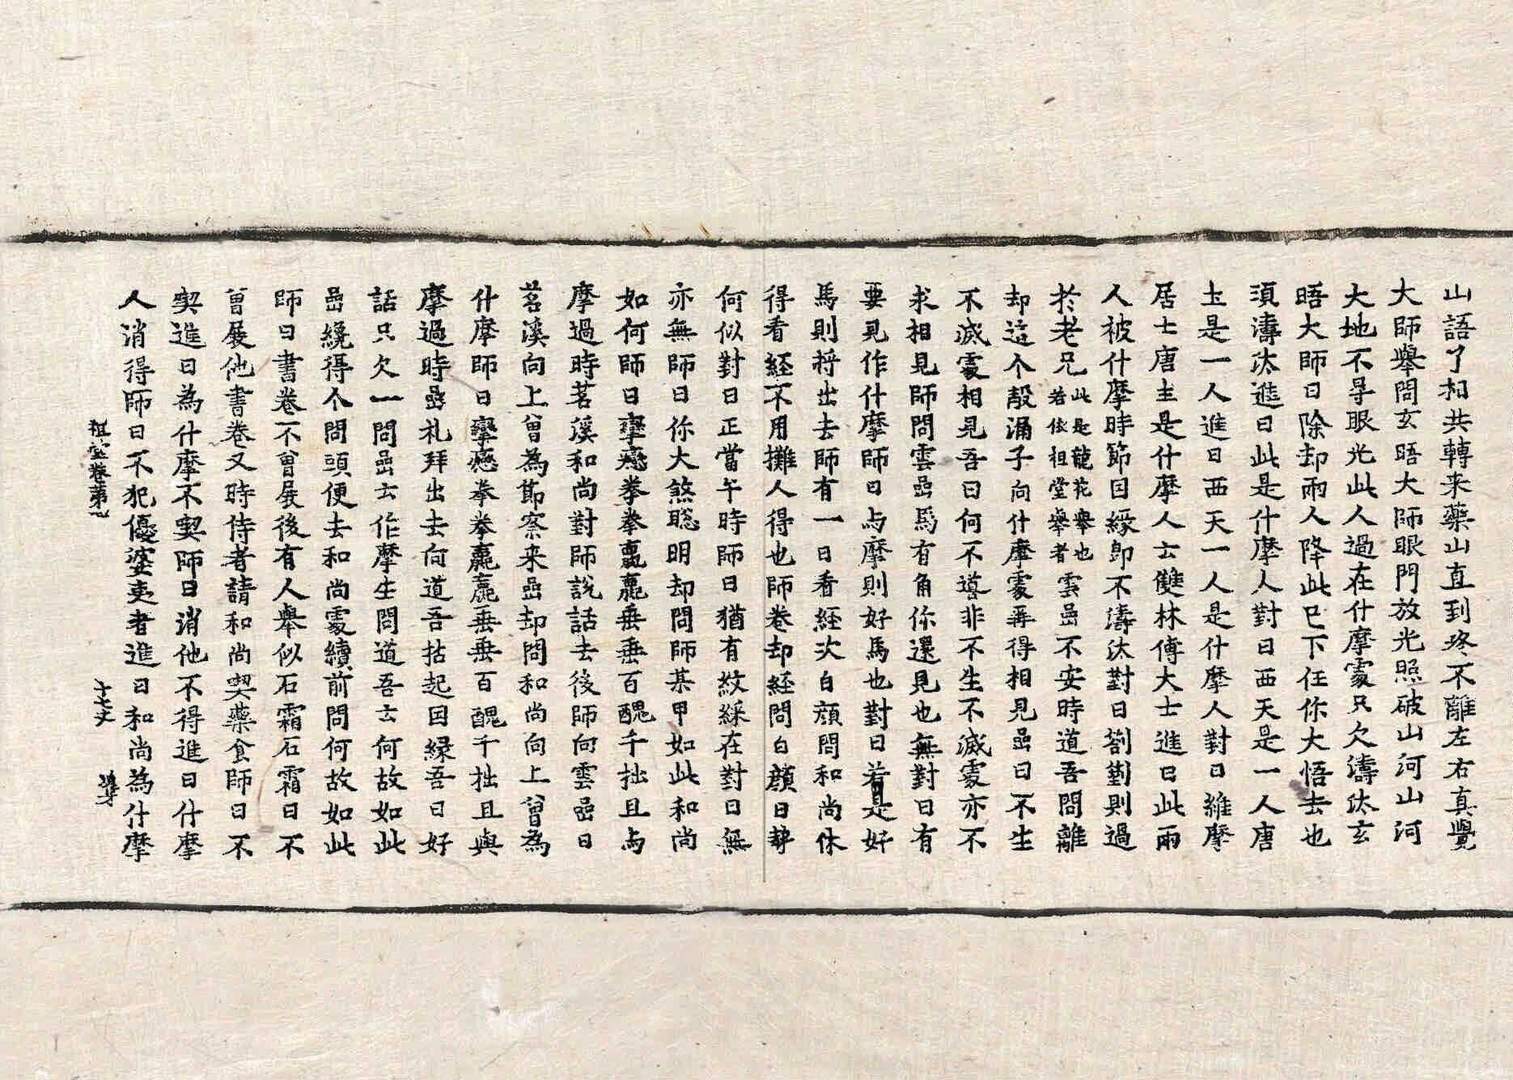 山語了相共轉来藥山直到疼不離左右真覺
大師舉問玄晤大師眼門放光照破山河山河
大地不㝵眼光此人過在什摩處只欠濤汰玄
晤大師曰除却兩人降此已下任你大悟去也
須濤汰進曰此是什摩人對曰西天是一人唐
土是一人進曰西天一人是什摩人對曰維摩
居士唐土是什摩人云雙林傅大士進曰此兩
人被什摩時節因緣即不濤汰對曰劄劄則過
於老兄此是龍花舉也若依祖堂舉者雲嵒不安時道吾問離
却這个殼漏子向什摩處再得相見嵒曰不生
不滅處相見吾曰何不導非不生不滅處亦不
求相見師問雲嵒馬有角你還見也無對曰有
要見作什摩師曰与摩則好馬也對曰若是好
馬則捋出去師有一日看經次白顔問和尚休
得看經不用攤人得也師卷却經問白顔曰㔟
何似對曰正當午時師曰猶有紋綵在對曰無
亦無師曰你大煞聡明却問師某甲如此和尚
如何師曰攣攣拳拳羸羸垂垂百醜千拙且与
摩過時茗溪和尚對師說話去後師向雲嵒曰
茗溪向上曾為節察来嵒却問和尚向上曾為
什摩師曰攣攣拳拳羸羸垂垂百醜千拙且與
摩過時嵒礼拜出去向道吾拈起因緣吾曰好
話只欠一問嵒云作摩生問道吾云何故如此
嵒纔得个問頭便去和尚處續前問何故如此
師曰書卷不曾展後有人舉似石霜石霜曰不
曾展他書卷又時侍者請和尚喫藥食師曰不
喫進曰為什摩不喫師曰消他不得進曰什摩
人消得師曰不犯優婆夷者進曰和尚為什摩
祖堂卷第 十七丈